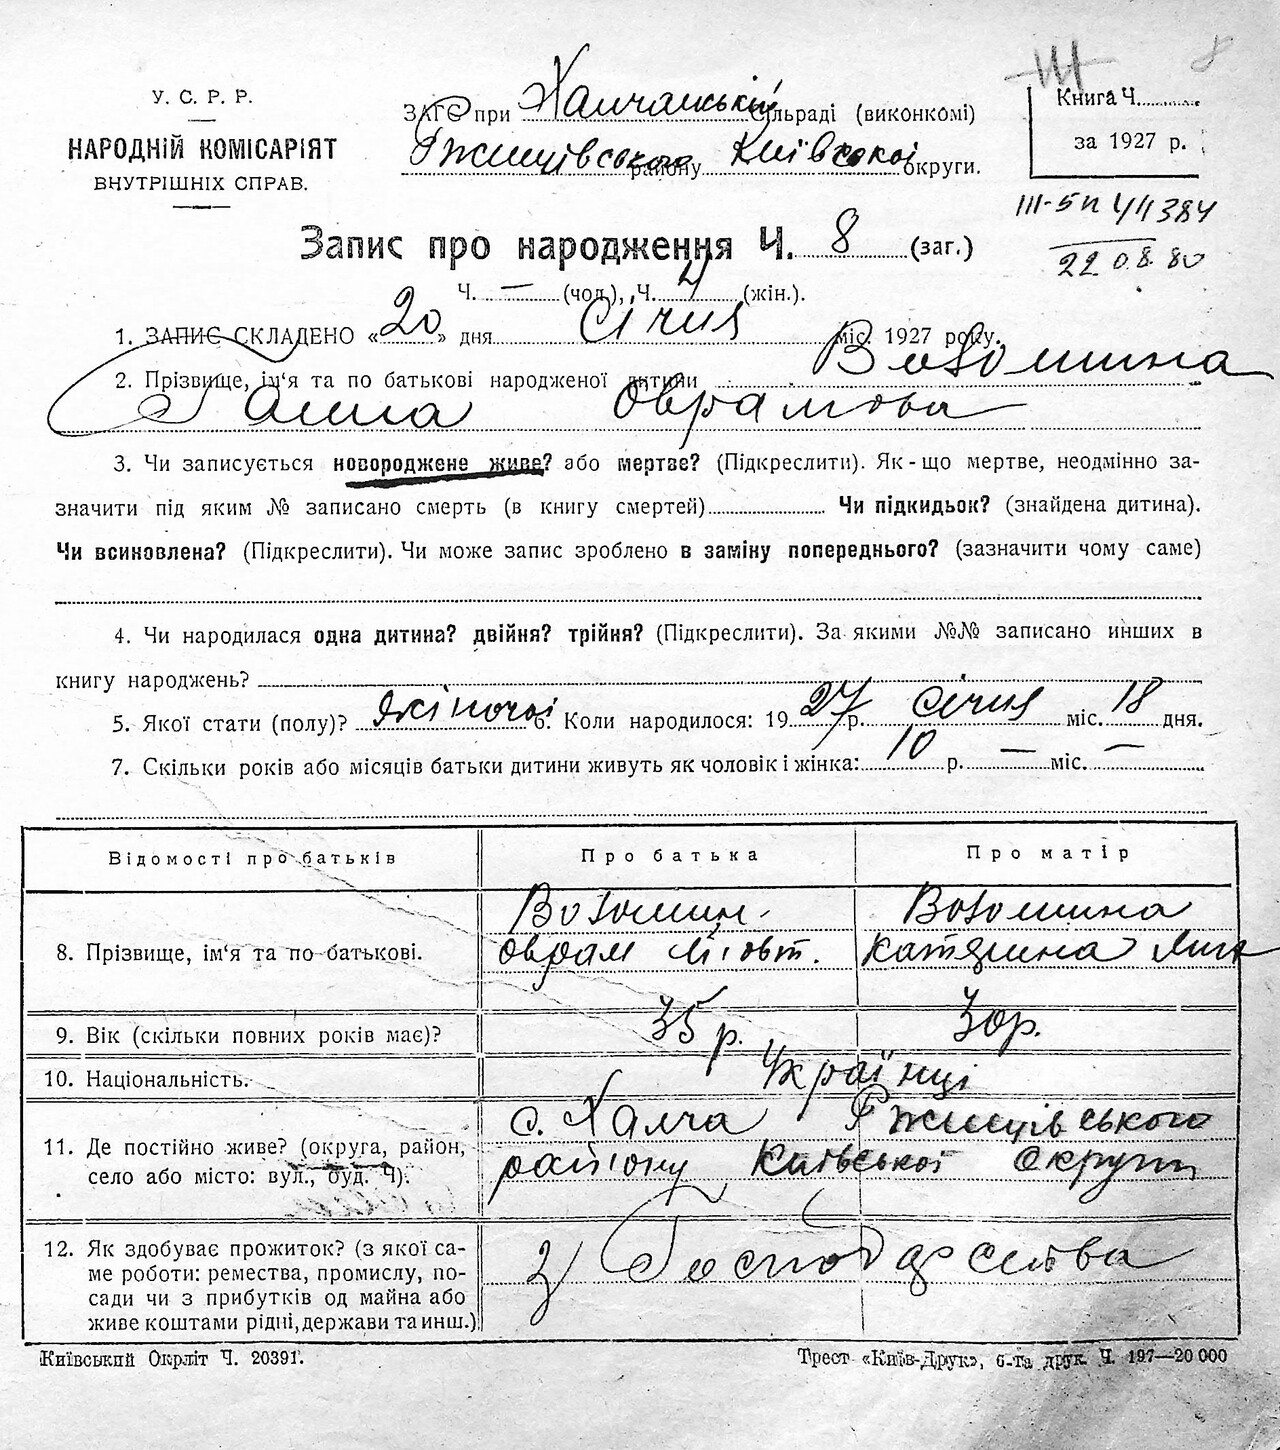 8
У. С. Р. Р.
НАРОДНІЙ КОМІСАРІЯТ
ВНУТРІШНІХ СПРАВ.
ЗАГС при Халчанській сільраді (виконкомі)
Ржищівського району Київської округи.
Книга Ч.
за 1927 р.
III-5П 411384
22 08. 80
Запис про народження Ч. 8 (заг.)
Ч. — (чол.), Ч. 4 (жін.).
1. ЗАПИС СКЛАДЕНО «20» дня Січня міс. 1927 року.
2. Прізвище, ім'я та по батькові народженої дитини
Ганна Оврамова
3. Чи записується новороджене живе? або мертве? (Підкреслити). Як-що мертве, неодмінно за-
значити під яким № записано смерть (в книгу смертей) Чи підкидьок? (знайдена дитина).
Чи всиновлена? (Підкреслити). Чи може запис зроблено в заміну попереднього? (зазначити чому саме)
4. Чи народилася одна дитина? двійня? трійня? (Підкреслити). За якими №№ записано инших в
книгу народжень?
5. Якої стати (полу)? жіночої 6. Коли народилося: 1927 р. січня міс. 18 дня.
7. Скільки років або місяців батьки дитини живуть як чоловік і жінка: 10 р. — міс. —
Відомості про батьків Про батька Про матір
8. Прізвище, ім'я та по батькові.
Оврам Катерина
9. Вік (скільки повних років має)? 35 р. 30 р.
10. Національність. Українці
11. Де постійно живе? (округа, район, с. Халча Ржищівського
село або місто: вул., буд. Ч). району Київської Округи
12. Як здобуває прожиток? (з якої са-
ме роботи: ремества, промислу, по-
сади чи з прибутків од майна або
живе коштами рідні, держави та инш.)
З Господарства
Київський Окрліт Ч. 20391. Трест «Київ-Друк», 6-та друк. Ч. 197—20 000